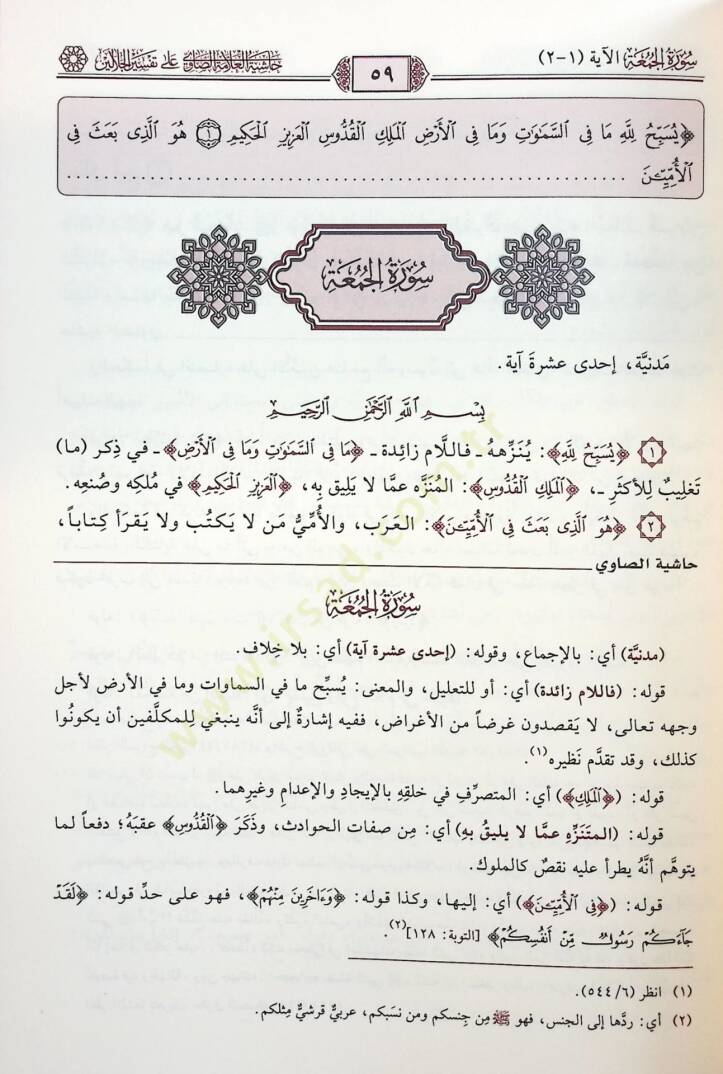 سُورَةُ الجُمُعَةِ الآية (١-٢)
٥٩
حاشية العلامة الصاوي على تفسير الجلالين
﴿يُسَبِّحُ لِلَّهِ مَا فِى السَّمَٰوَٰتِ وَمَا فِى الْأَرْضِ الْمَلِكِ الْقُدُّوسِ الْعَزِيزِ الْحَكِيمِ ۝١ هُوَ الَّذِى بَعَثَ فِى
الْأُمِّيِّـۧنَ ................................................
سُورَةُ الجُمُعَةِ
مَدنيَّة، إحدى عشرةَ آية.
بِسْمِ اللَّهِ الرَّحْمَٰنِ الرَّحِيمِ
١ ﴿يُسَبِّحُ لِلَّهِ﴾: يُنَزِّههُ ـ فاللَّام زائدة ـ ﴿مَا فِى السَّمَٰوَٰتِ وَمَا فِى الْأَرْضِ﴾ ـ في ذِكر (ما)
تَغلِيبٌ لِلأكثَرِ ـ، ﴿الْمَلِكِ الْقُدُّوسِ﴾: المُنَزَّه عمَّا لا يَليق بِه، ﴿الْعَزِيزِ الْحَكِيمِ﴾ في مُلكِه وصُنعِه.
٢ ﴿هُوَ الَّذِى بَعَثَ فِى الْأُمِّيِّـۧنَ﴾: العرَب، والأُمِّيُّ مَن لا يَكتُب ولا يَقرَأ كِتاباً،
حاشية الصاوي
سُورَةُ الجُمُعَةِ
(مدنيَّة) أي: بالإجماع، وقوله: (إحدى عشرة آية) أي: بلا خِلاف.
قوله: (فاللام زائدة) أي: أو للتعليل، والمعنى: يُسبِّح ما في السماوات وما في الأرض لأجل
وجهه تعالى، لا يَقصدون غرضاً من الأغراض، ففيه إشارةٌ إلى أنَّه ينبغي لِلمكلَّفين أن يكونُوا
كذلك، وقد تقدَّم نَظيره(١).
قوله: (﴿الْمَلِكِ﴾) أي: المتصرِّف في خلقِهِ بالإيجادِ والإعدامِ وغيرِهما.
قوله: (المتَنزِّه عمَّا لا يليقُ بهِ) أي: مِن صفات الحوادث، وذَكَرَ ﴿الْقُدُّوسِ﴾ عقبَهُ؛ دفعاً لما
يتوهَّم أنَّهُ يطرأ عليه نقصٌ كالملوك.
قوله: (﴿فِى الْأُمِّيِّـۧنَ﴾) أي: إليها، وكذا قوله: ﴿وَءَاخَرِينَ مِنْهُمْ﴾، فهو على حدِّ قوله: ﴿لَقَدْ
جَآءَكُمْ رَسُولٌ مِّنْ أَنفُسِكُمْ﴾ [التوبة: ١٢٨](٢).
(١) انظر (٦/ ٥٤٤).
(٢) أي: ردَّها إلى الجنس، فهو ﷺ مِن جِنسكم ومن نسَبكم، عربيٌّ قرشيٌّ مِثلكم.
www.irsad.com.tr